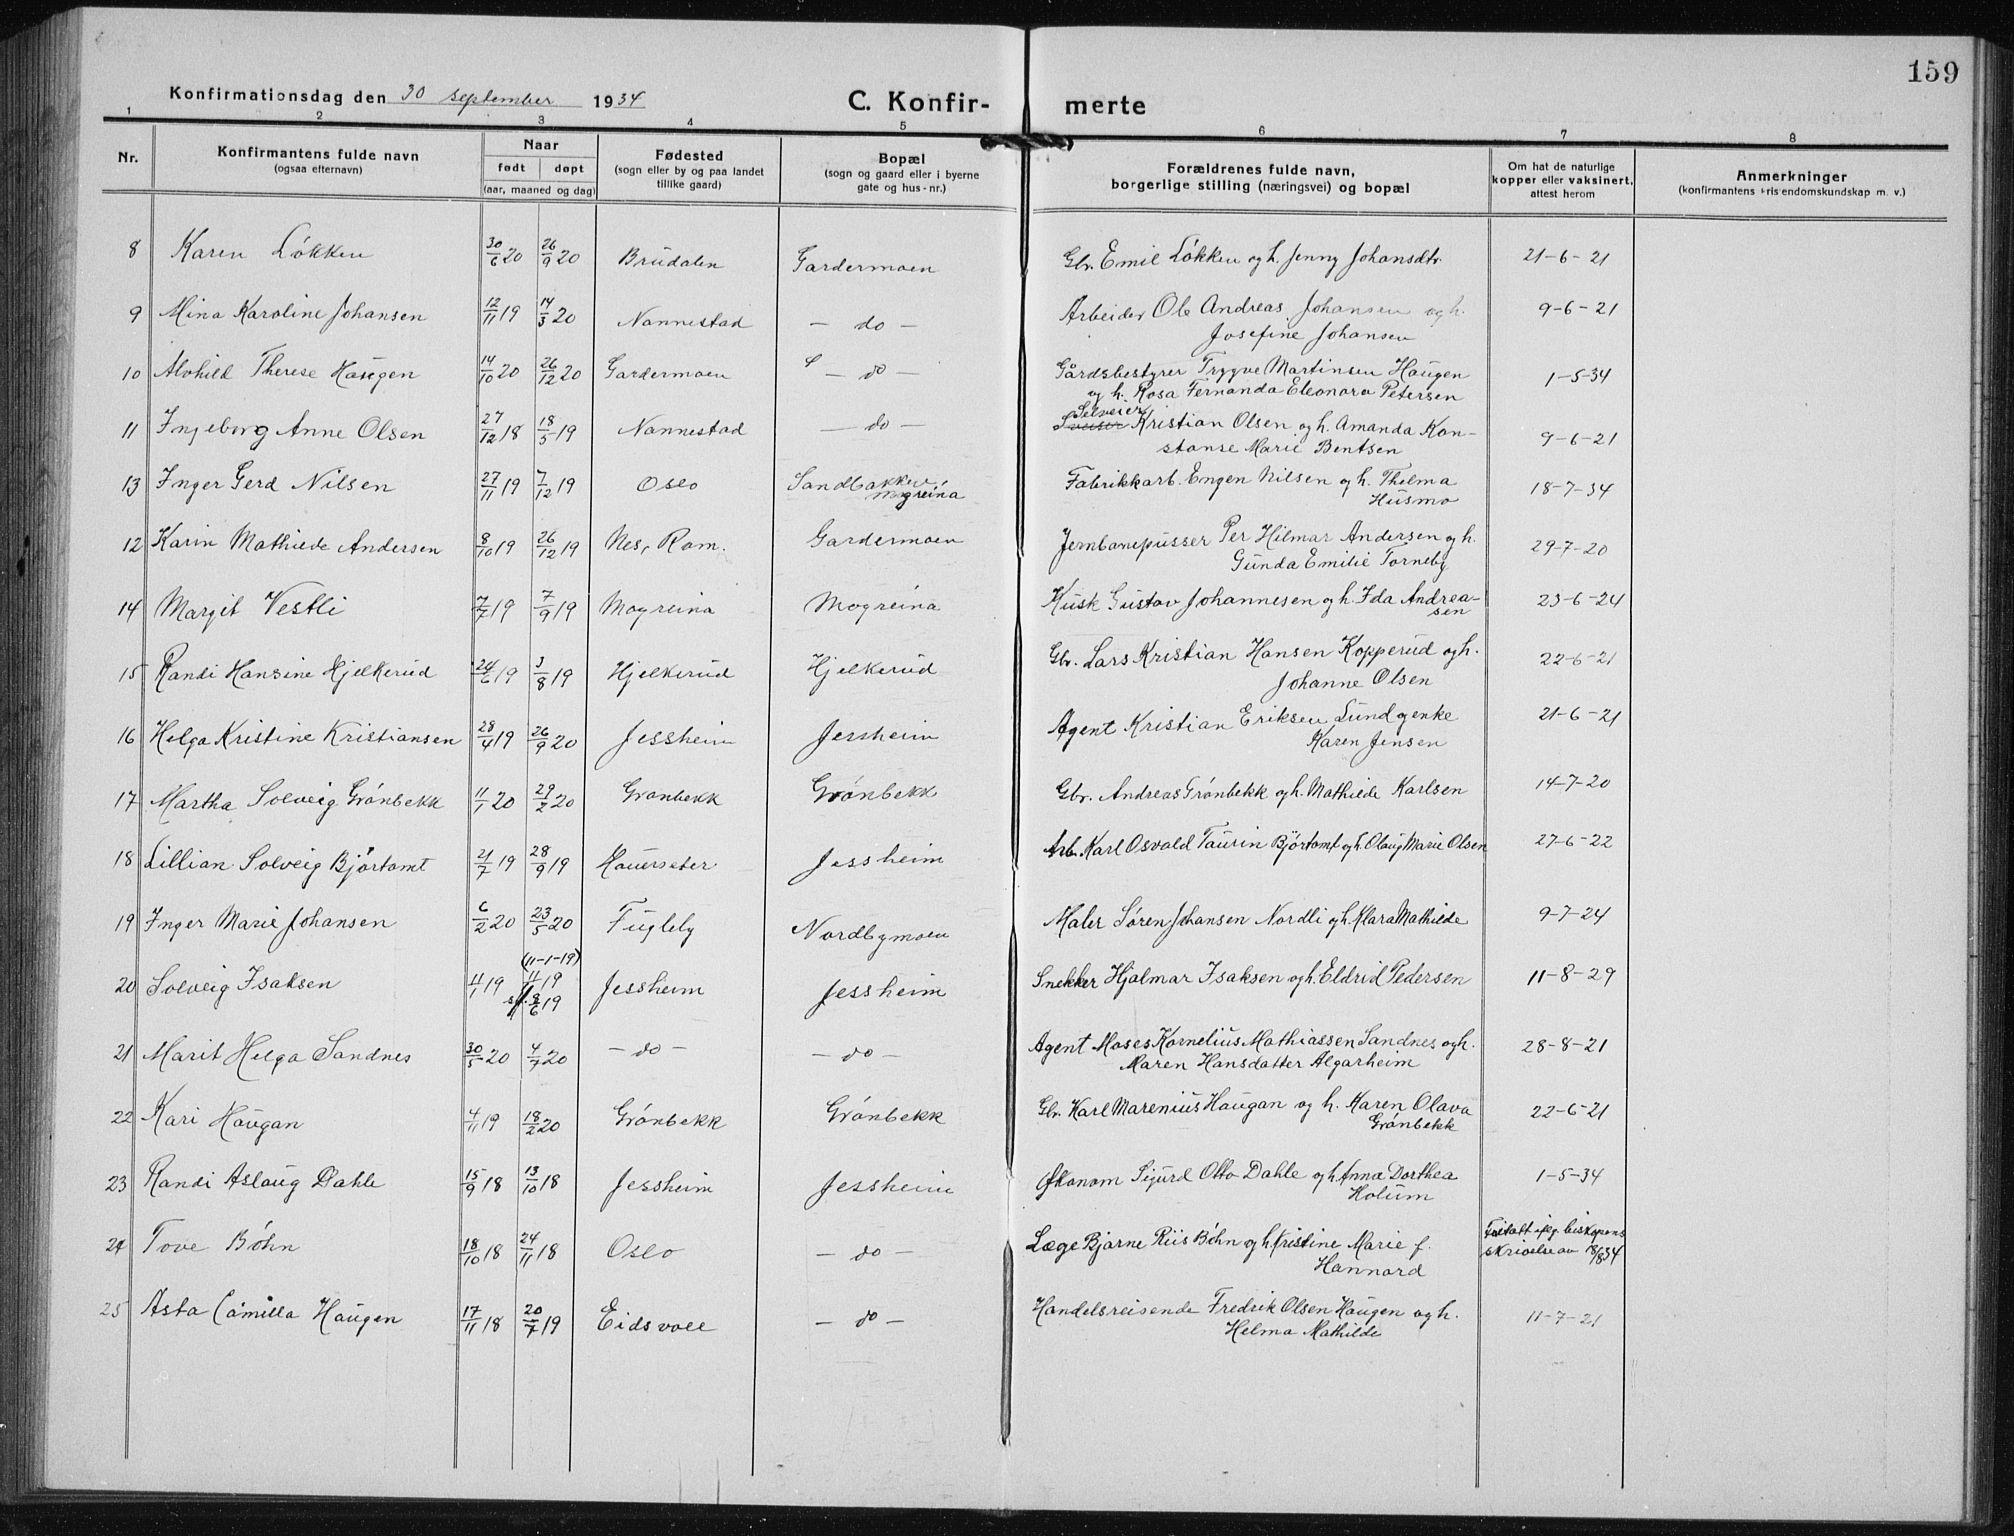 159
Konfirmationsdag den 30 september 1934
C. Konfir- merte
1 2 3 4 5 6 7 8
Nr.
Konfirmantens fulde navn
(ogsaa efternavn)
Naar
født døpt
(aar, maaned og dag)
Fødested
(sogn eller by og paa landet
tillike gaard)
Bopæl
(sogn og gaard eller i byerne
gate og hus-nr.)
Forældrenes fulde navn,
borgerlige stilling (næringsvei) og bopæl
Om hat de naturlige
kopper eller vaksinert,
attest herom
Anmerkninger
(konfirmantens kristendomskundskap m. v.)
8 Karen Løkken 30/6 20 26/9 20 Brudalen Gardermoen Gbr. Emil Løkken og h. Jenny Johansdtr. 21-6-21
9 Mina Karoline Johansen 12/11 19 14/3 20 Nannestad - do - Arbeider Ole Andreas Johansen og h. 9-6-21
Josefine Johansen
10 Alvhild Therese Haugen 14/10 20 26/12 20 Gardermoen - do - Gårdsbestyrer Trygve Martinsen Haugen 1-5-34
og h. Rosa Fernanda Eleonora Petersen
Selveier
11 Ingeborg Anne Olsen 27/12 18 18/5 19 Nannestad - do - Sveiser Kristian Olsen og h. Amanda Kon- 9-6-21
stanse Marie Bentsen
13 Inger Gerd Nilsen 27/11 19 7/12 19 Oslo Sandbakken Fabrikkarb. Engen Nilsen og h. Thelma 18-7-34
Mogreina Husmo
12 Karin Mathilde Andersen 8/10 19 26/12 19 Nes, Rom. Gardermoen Jernbanepusser Per Hilmar Andersen og h. 29-7-20
Gunda Emilie Torneby
14 Margit Vestli 7/7 19 7/9 19 Mogreina Mogreina Husk Gustav Johannesen og h. Ida Andrea- 23-6-24
sen
15 Randi Hansine Hjelkerud 24/6 19 3/8 19 Hjelkerud Hjelkerud Gbr. Lars Kristian Hansen Kopperud og h. 22-6-21
Johanne Olsen
16 Helga Kristine Kristiansen 28/4 19 26/9 20 Jessheim Jessheim Agent Kristian Eriksen Lund og enke 21-6-21
Karen Jensen
17 Martha Solveig Grønbekk 11/1 20 29/2 20 Grønbekk Grønbekk Gbr. Andreas Grønbekk og h. Mathilde Karlsen 14-7-20
18 Lillian Solveig Bjørtomt 21/7 19 28/9 19 Hauerseter Jessheim Arb. Karl Osvald Taurin Bjørtomt og h. Olaug Marie Olsen 27-6-22
19 Inger Marie Johansen 6/2 20 23/5 20 Fugleby Nordbymoen Maler Søren Johansen Nordli og h. Klara Mathilde 9-7-24
(11-1-19)
20 Solveig Isaksen 11/1 19 11/1 19 Jessheim Jessheim Snekker Hjalmar Isaksen og h. Eldrid Pedersen 11-8-29
st. 8/6 19
21 Marit Helga Sandnes 30/5 20 4/7 20 - do - - do - Agent Moses Kornelius Mathiassen Sandnes og h. 28-8-21
Maren Hansdatter Algarheim
22 Kari Haugan 4/11 19 18/2 20 Grønbekk Grønbekk Gbr. Karl Marenius Haugan og h. Karen Olava 22-6-21
Grønbekk
23 Randi Aslaug Dahle 15/9 18 13/10 18 Jessheim Jessheim Økonom Sigurd Otto Dahle og h. Anna Dorthea 1-5-34
Holum
24 Tove Bøhn 18/10 18 24/11 18 Oslo - do Læge Bjarne Riis Bøhn og h. Kristine Marie f. Fritatt iflg. biskopens
Hannord skrivelse av 18/8 34
25 Asta Camilla Haugen 17/11 18 20/7 19 Eidsvoll - do - Handelsreisende Fredrik Olsen Haugen og h. 11-7-21
Helma Mathilde